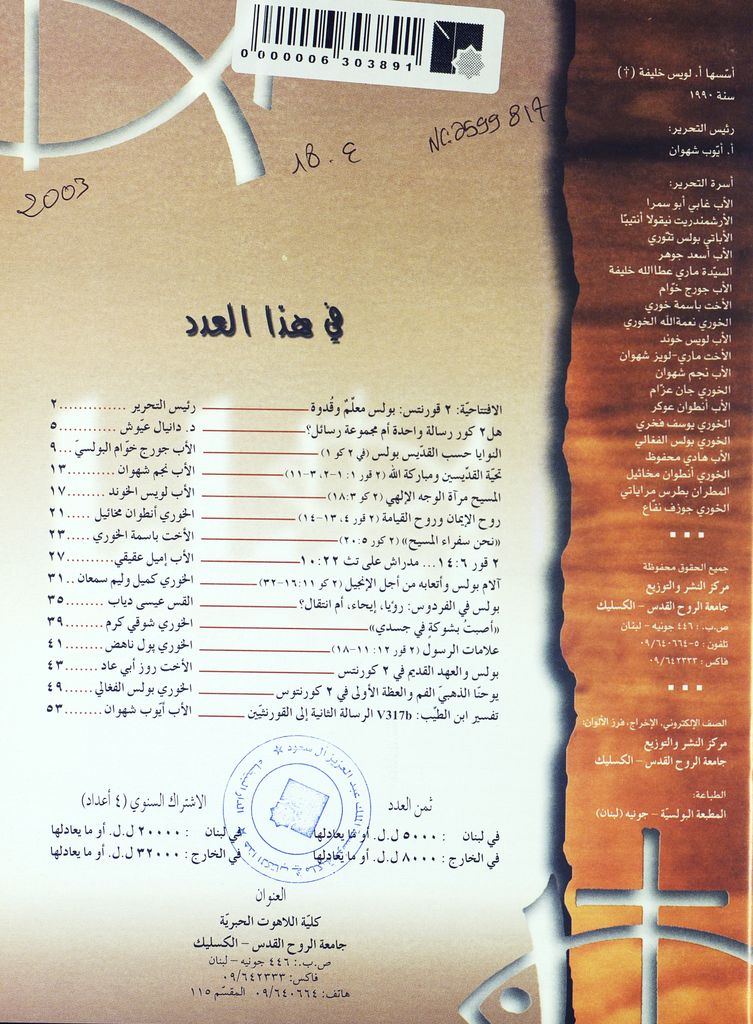 0000006 303891
2003
18. ع
NC:2599 817
في هذا العدد
الافتتاحيّة: ٢ قورنتس: بولس معلّمٌ وقُدوة رئيس التحرير ............ ٢
هل٢ كور رسالة واحدة أم مجموعة رسائل؟ د. دانيال عيّوش ............ ٥
النوايا حسب القدّيس بولس (في ٢ كو ١) الأب جورج خوّام البولسيّ ... ٩
تحيّة القدّيسين ومباركة الله (٢ قور ١: ١-٢، ٣-١١) الأب نجم شهوان ........ ١٣
المسيح مرآة الوجه الإلهي (٢ كو ٣:١٨) الأب لويس الخوند ........ ١٧
روح الإيمان وروح القيامة (٢ قور ٤، ١٣-١٤) الخوري أنطوان مخائيل ..... ٢١
«نحن سفراء المسيح» (٢ كو ٥:٢٠) الأخت باسمة الخوري ..... ٢٣
٢ قور ٦:١٤... مدراش على تث ٢٢:١٠ الأب إميل عقيقي ........ ٢٧
آلام بولس وأتعابه من أجل الإنجيل (٢ كو ١١:١٦-٣٢) الخوري كميل وليم سمعان . ٣١
بولس في الفردوس: رؤيا، إيحاء، أم انتقال؟ القس عيسى دياب ........ ٣٥
«أصبتُ بشوكةٍ في جسدي» الخوري شوقي كرم ....... ٣٩
علامات الرسول (٢ قور ١٢: ١١-١٨) الخوري پول ناهض ....... ٤١
بولس والعهد القديم في ٢ كورنتس الأخت روز أبي عاد ....... ٤٣
يوحنّا الذهبيّ الفم والعظة الأولى في ٢ كورنتوس الخوري بولس الفغالي ...... ٤٩
تفسير ابن الطيّب: V317b الرسالة الثانية إلى القورنثيّين الأب أيّوب شهوان ........ ٥٣
ثمن العدد
في لبنان : ٥٠٠٠ ل.ل. أو ما يعادلها
في الخارج : ٨٠٠٠ ل.ل. أو ما يعادلها
الاشتراك السنوي (٤ أعداد)
في لبنان : ٢٠٠٠٠ ل.ل. أو ما يعادلها
في الخارج : ٣٢٠٠٠ ل.ل. أو ما يعادلها
العنوان
كليّة اللاهوت الحبريّة
جامعة الروح القدس - الكسليك
ص.ب.: ٤٤٦ جونيه - لبنان
فاكس: ٠٩/٦٤٢٣٣٣
هاتف: ٠٩/٦٤٠٦٦٤ المقسّم ١١٥
أسّسها أ. لويس خليفة (†)
سنة ١٩٩٠
رئيس التحرير:
أ. أيّوب شهوان
أسرة التحرير:
الأب غابي أبو سمرا
الأرشمندريت نيقولا أنتيبّا
الأباتي بولس تنّوري
الأب أسعد جوهر
السيّدة ماري عطاالله خليفة
الأب جورج خوّام
الأخت باسمة خوري
الخوري نعمةالله الخوري
الأب لويس خوند
الأخت ماري-لويز شهوان
الأب نجم شهوان
الخوري جان عزّام
الأب أنطوان عوكر
الخوري يوسف فخري
الخوري بولس الفغالي
الأب هادي محفوظ
الخوري أنطوان مخائيل
المطران بطرس مراياتي
الخوري جوزف نفّاع
جميع الحقوق محفوظة
مركز النشر والتوزيع
جامعة الروح القدس - الكسليك
ص.ب.: ٤٤٦ جونيه - لبنان
تلفون: ٥-٠٩/٦٤٠٦٦٤
فاكس: ٠٩/٦٤٢٣٣٣
الصف الإلكتروني، الإخراج، فرز الألوان:
مركز النشر والتوزيع
جامعة الروح القدس - الكسليك
الطباعة:
المطبعة البولسيّة - جونيه (لبنان)